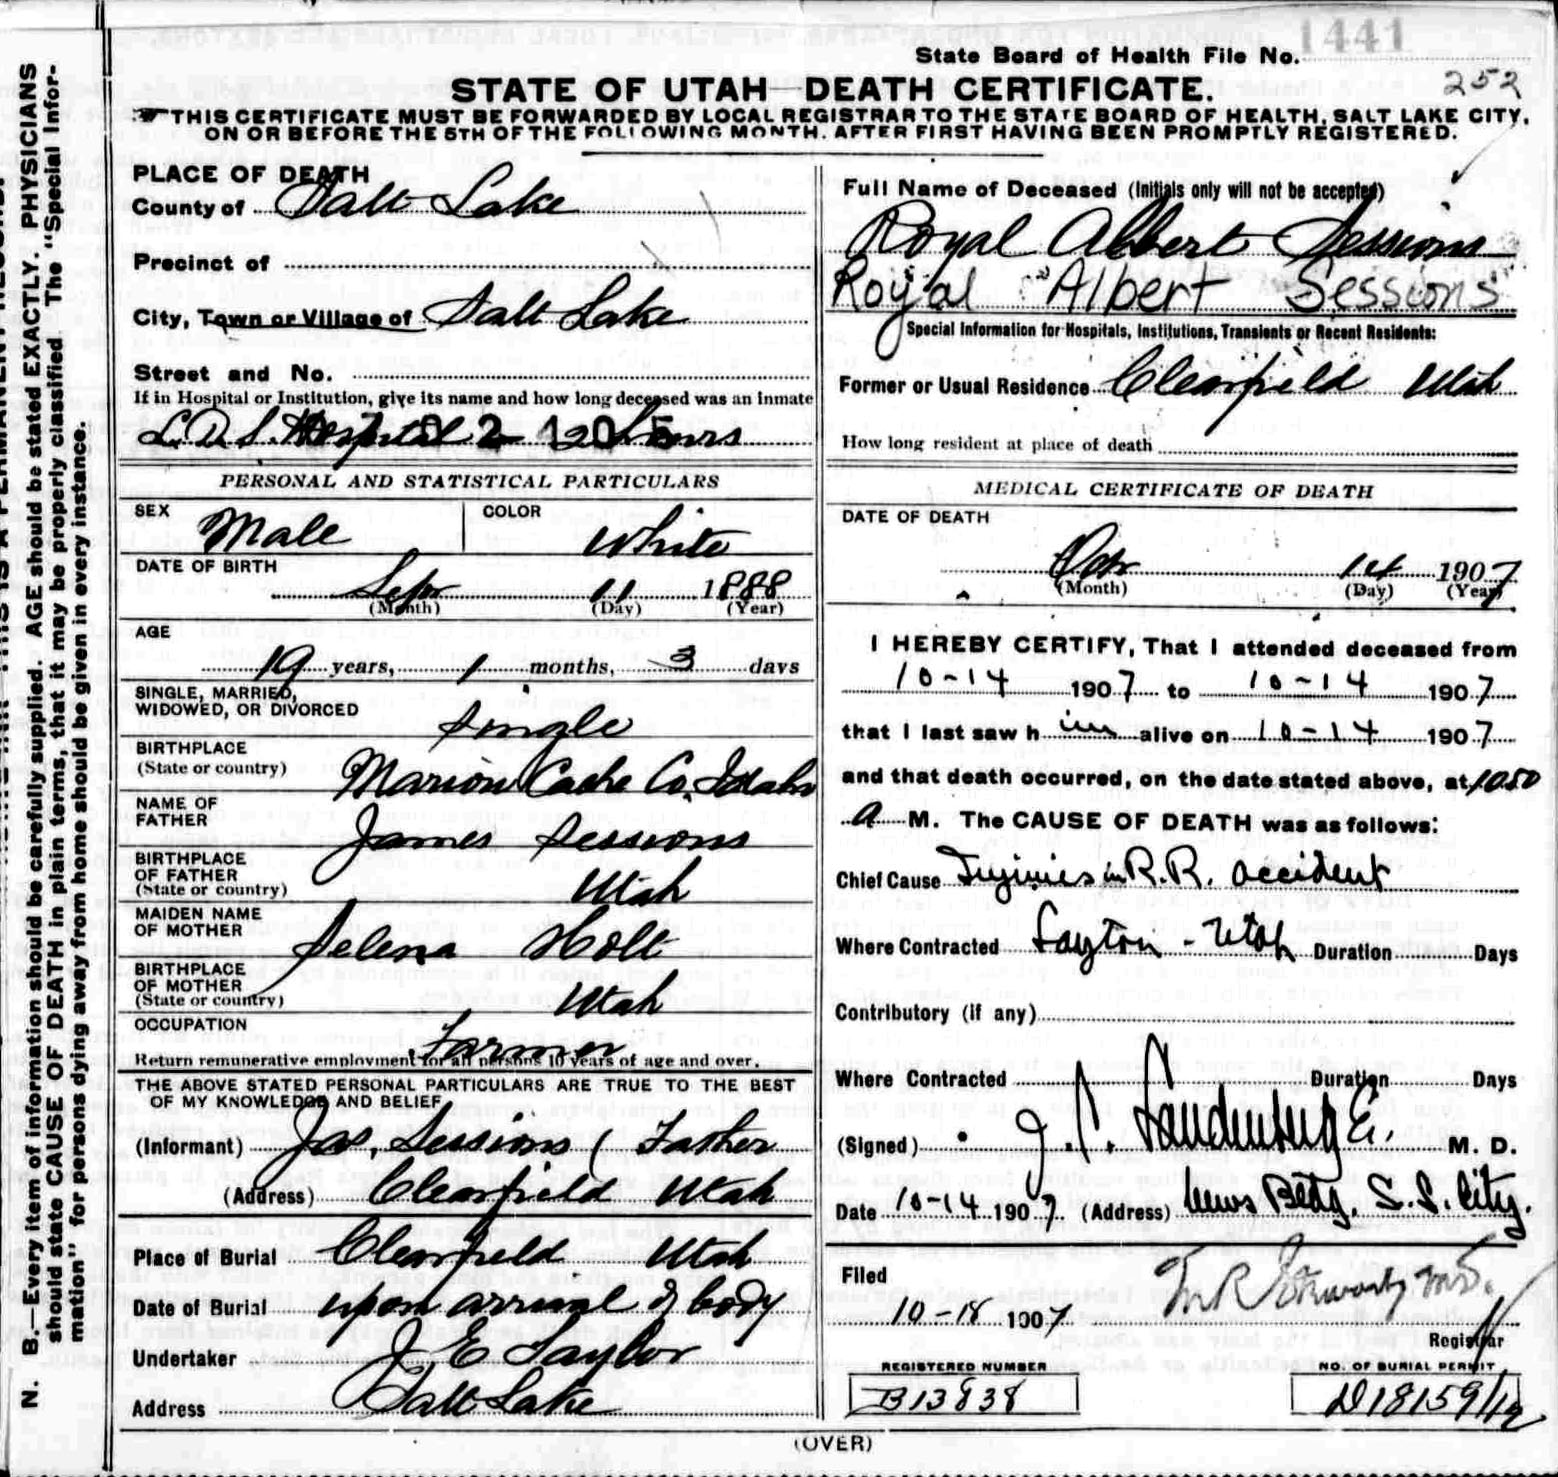 1441
State Board of Health File No.
252
STATE OF UTAH—DEATH CERTIFICATE.
THIS CERTIFICATE MUST BE FORWARDED BY LOCAL REGISTRAR TO THE STATE BOARD OF HEALTH, SALT LAKE CITY,
ON OR BEFORE THE 5TH OF THE FOLLOWING MONTH, AFTER FIRST HAVING BEEN PROMPTLY REGISTERED.
N. B.—Every item of information should be carefully supplied. AGE should be stated EXACTLY. PHYSICIANS
should state CAUSE OF DEATH in plain terms, that it may be properly classified. The "Special Infor-
mation" for persons dying away from home should be given in every instance.
PLACE OF DEATH
County of Salt Lake
Precinct of
City, Town or Village of Salt Lake
Street and No.
If in Hospital or Institution, give its name and how long deceased was an inmate
L.D.S. Hospital hours
PERSONAL AND STATISTICAL PARTICULARS
SEX Male COLOR White
DATE OF BIRTH
Sept 11 1888
(Month) (Day) (Year)
AGE
19 years, 1 months, 3 days
SINGLE, MARRIED,
WIDOWED, OR DIVORCED Single
BIRTHPLACE
(State or country) Marion Cache Co. Idaho
NAME OF
FATHER James Sessions
BIRTHPLACE
OF FATHER
(State or country) Utah
MAIDEN NAME
OF MOTHER Selena Holt
BIRTHPLACE
OF MOTHER
(State or country) Utah
OCCUPATION Farmer
Return remunerative employment for all persons 10 years of age and over.
THE ABOVE STATED PERSONAL PARTICULARS ARE TRUE TO THE BEST
OF MY KNOWLEDGE AND BELIEF
(Informant) Jas. Sessions (Father
(Address) Clearfield Utah
Place of Burial Clearfield Utah
Date of Burial upon arrival of body
Undertaker J. E. Taylor
Address Salt Lake
Full Name of Deceased (Initials only will not be accepted)
Royal Albert Sessions
Royal Albert Sessions
Special Information for Hospitals, Institutions, Transients or Recent Residents:
Former or Usual Residence Clearfield Utah
How long resident at place of death
MEDICAL CERTIFICATE OF DEATH
DATE OF DEATH
Oct 14 1907
(Month) (Day) (Year)
I HEREBY CERTIFY, That I attended deceased from
10-14 1907 to 10-14 1907
that I last saw him alive on 10-14 1907
and that death occurred, on the date stated above, at 1050
A M. The CAUSE OF DEATH was as follows:
Chief Cause Injuries in R.R. accident
Where Contracted Layton - Utah Duration Days
Contributory (if any)
Where Contracted Duration Days
(Signed) J. C. Landenberger M. D.
Date 10-14 1907 (Address) News Bldg. S.L. City.
Filed
10-18 1907
Registrar
REGISTERED NUMBER
B13838
NO. OF BURIAL PERMIT
D18159/12
(OVER)